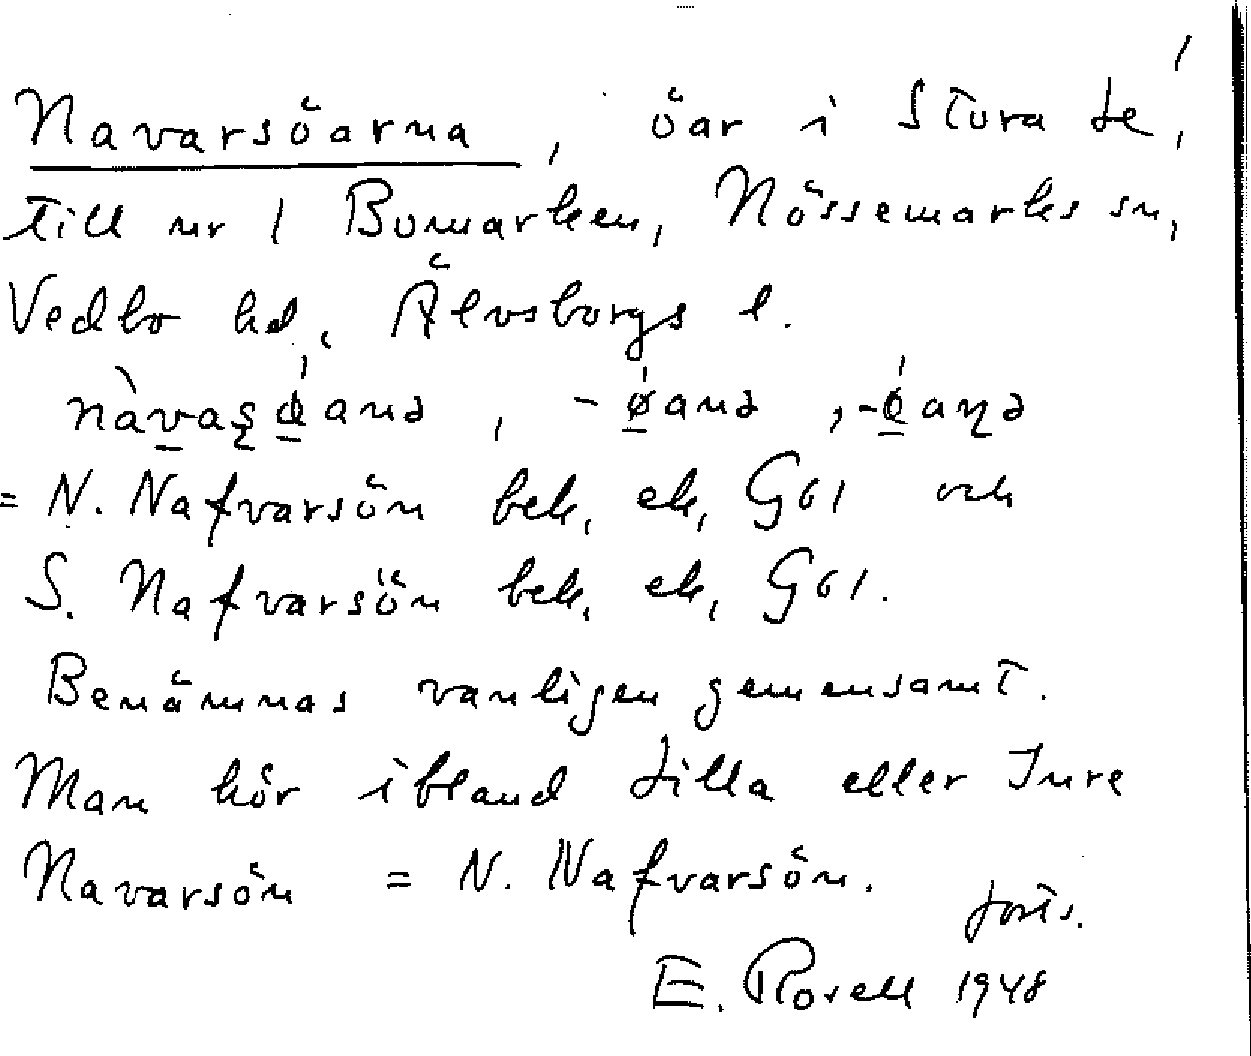 Navarsöarna, öar i Stora Le,
till nr 1 Bomarken, Nössemarks sn,
Vedbo hd, Älvsborgs l.
= N. Nafvarsön bek, ek, G61 och
S. Nafvarsön bek, ek, G61.
Benämnas vanligen gemensamt.
Man hör ibland Lilla eller Inre
Navarsön = N. Nafvarsön.
forts.
E. Rosell 1948